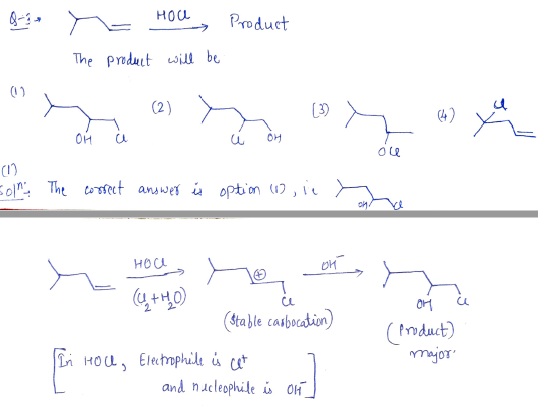 Q-3→ HOCl Product
The product will be
(1) OH Cl (2) Cl OH (3) OCl (4) Cl
(1)
Solⁿ:- The correct answer is option (1), i.e OH Cl
HOCl (Cl₂+H₂O) ⊕ Cl OH⁻ OH Cl
(Stable carbocation) (Product) major.
[In HOCl, Electrophile is Cl⁺
and nucleophile is OH⁻]